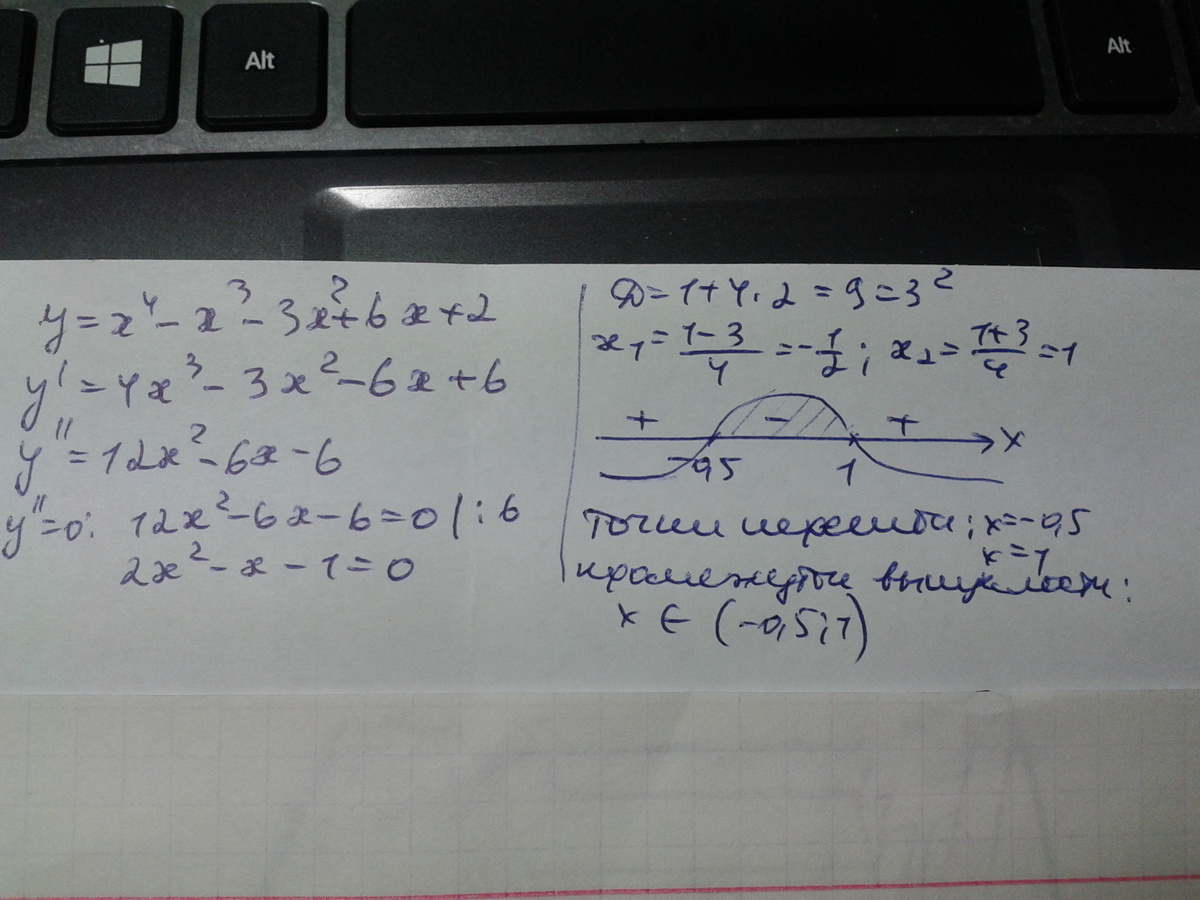 Alt
Alt
y = x⁴ - x³ - 3x² + 6x + 2
y' = 4x³ - 3x² - 6x + 6
y'' = 12x² - 6x - 6
y''=0: 12x² - 6x - 6 = 0 | : 6
2x² - x - 1 = 0
D = 1 + 4 · 2 = 9 = 3²
x₁ = (1-3)/4 = -1/2; x₂ = (1+3)/4 = 1
+ - + x
-0,5 1
точки перегиба: x = -0,5
x = 1
промежутки выпуклости:
x ∈ (-0,5; 1)